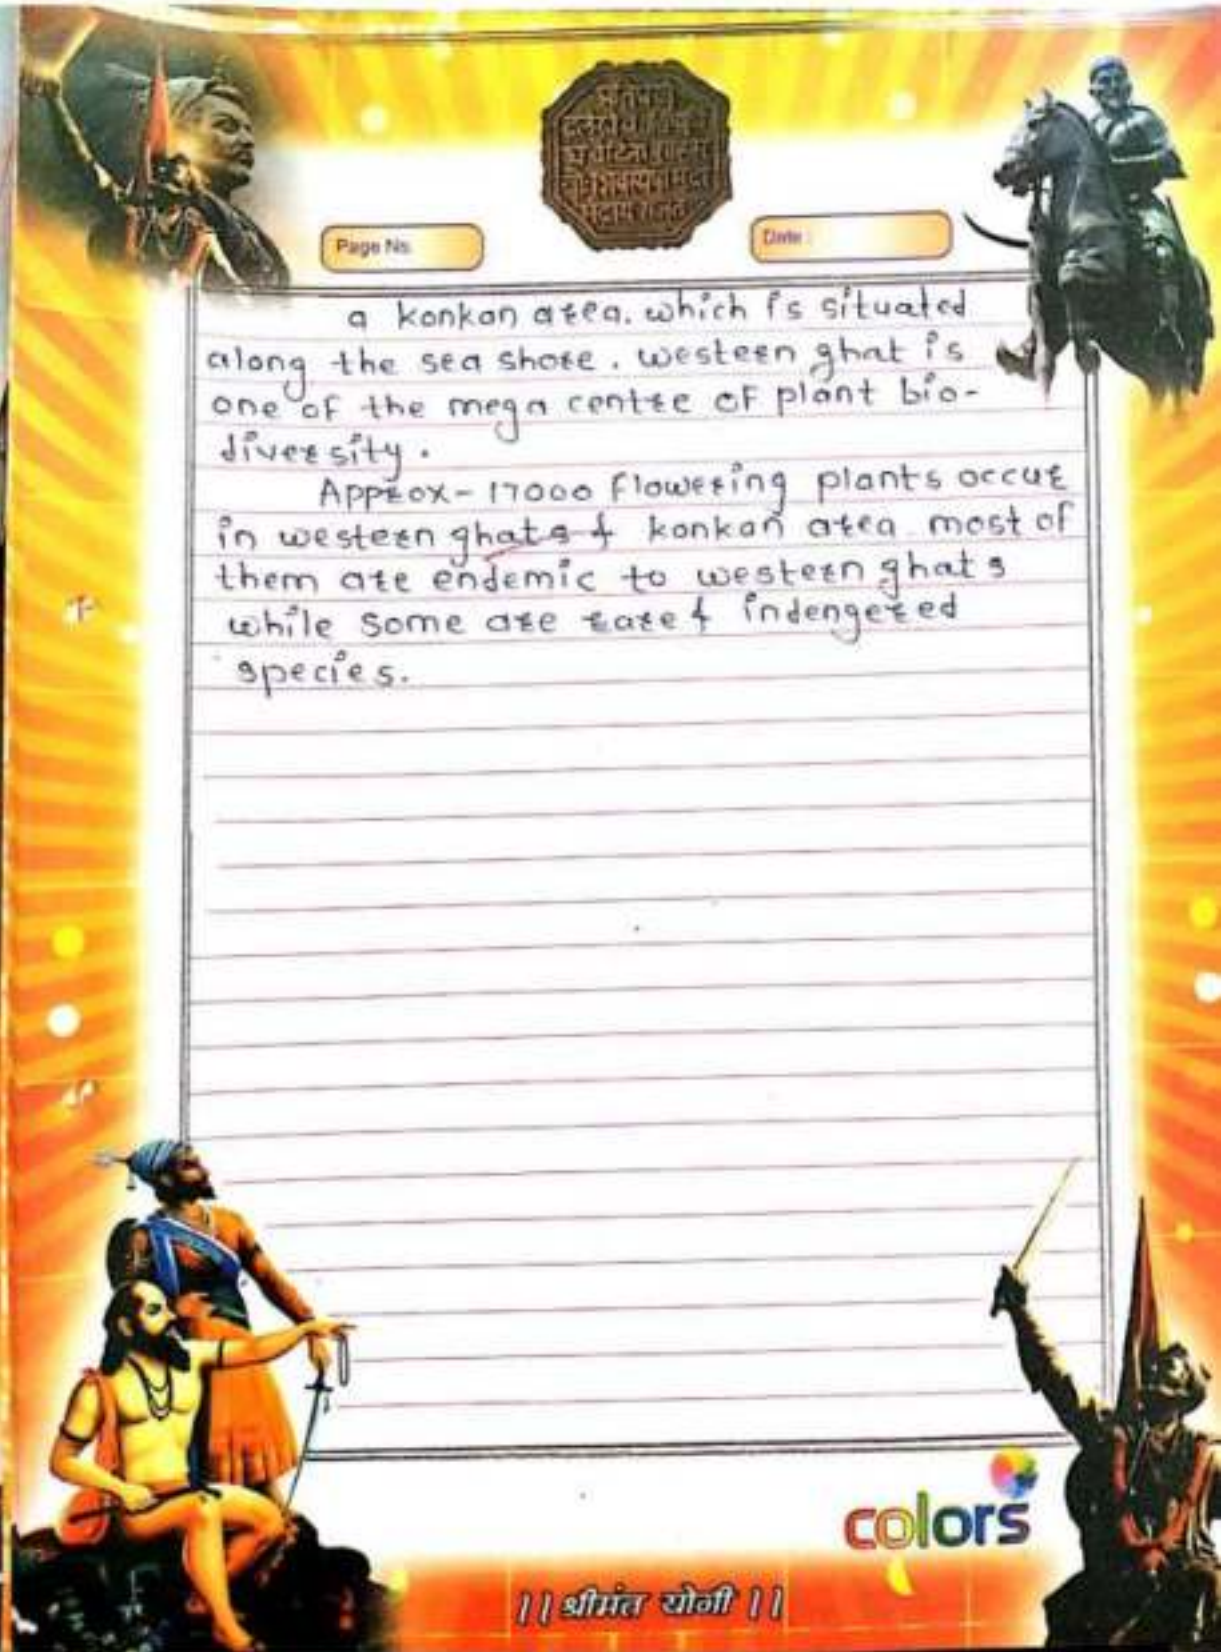 Page No.
Date :
a konkan area. which is situated
along the sea shore. western ghat is
one of the mega centre of plant bio-
diversity.
Approx- 17000 flowering plants occur
in western ghats & konkan area most of
them are endemic to western ghats
while some are rare & indengered
species.
colors
||श्रीमंत योगी ||